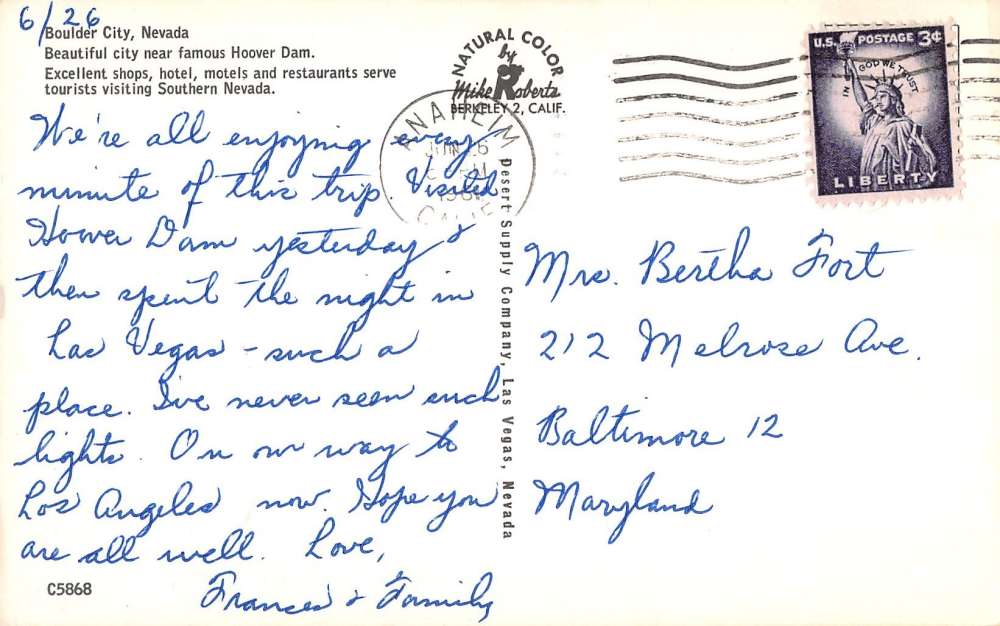 6/26
Boulder City, Nevada
Beautiful city near famous Hoover Dam.
Excellent shops, hotel, motels and restaurants serve
tourists visiting Southern Nevada.
NATURAL COLOR
by
Mike Roberts
BERKELEY 2, CALIF.
ANAHEIM
CALIF
U.S. POSTAGE 3¢
IN GOD WE TRUST
LIBERTY
We're all enjoying every
minute of this trip. Visited
Hoover Dam yesterday &
then spent the night in
Las Vegas – such a
place. I've never seen such
lights. On our way to
Los Angeles now. Hope you
are all well. Love,
Frances & Family
Desert Supply Company, Las Vegas, Nevada
Mrs. Bertha Fort
212 Melrose Ave.
Baltimore 12
Maryland
C5868